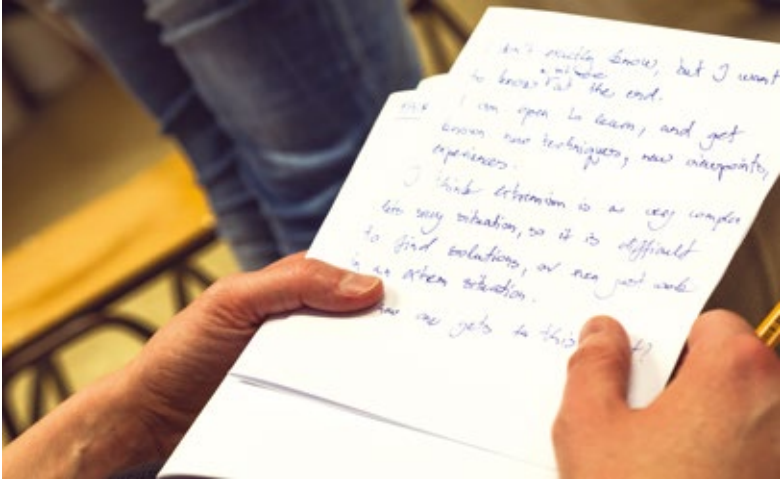 exactly know, but I want
to know at the end.
I am open to learn, and get
known new techniques, new viewpoints,
experiences.
I think extremism is a very complex
situation, so it is difficult
to find solutions, or even just work
in an extrem situation.
How one gets to this